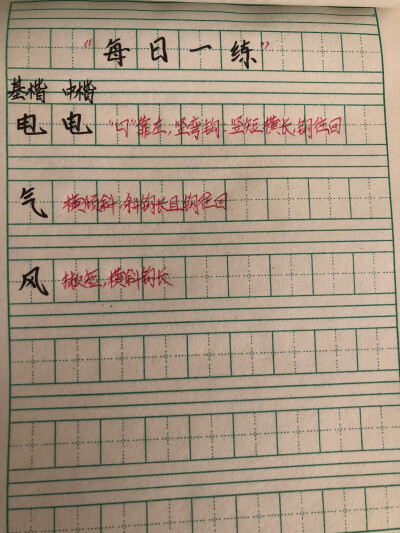 “每日一练”
基楷 中楷
电 电 “口”靠左，竖弯钩，竖短横长，钩住回
气 横倾斜，斜钩长且钩住回
风 撇短，横斜钩长